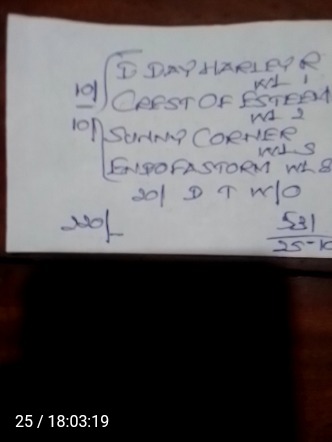 D DAY HARLEY R
10/ W1 1
CREST OF ESTEEM
W1 2
10/ SUNNY CORNER
W1 3
END OF A STORM W1 8
20/ D T W/O
220/- 531
25-10
25 / 18:03:19